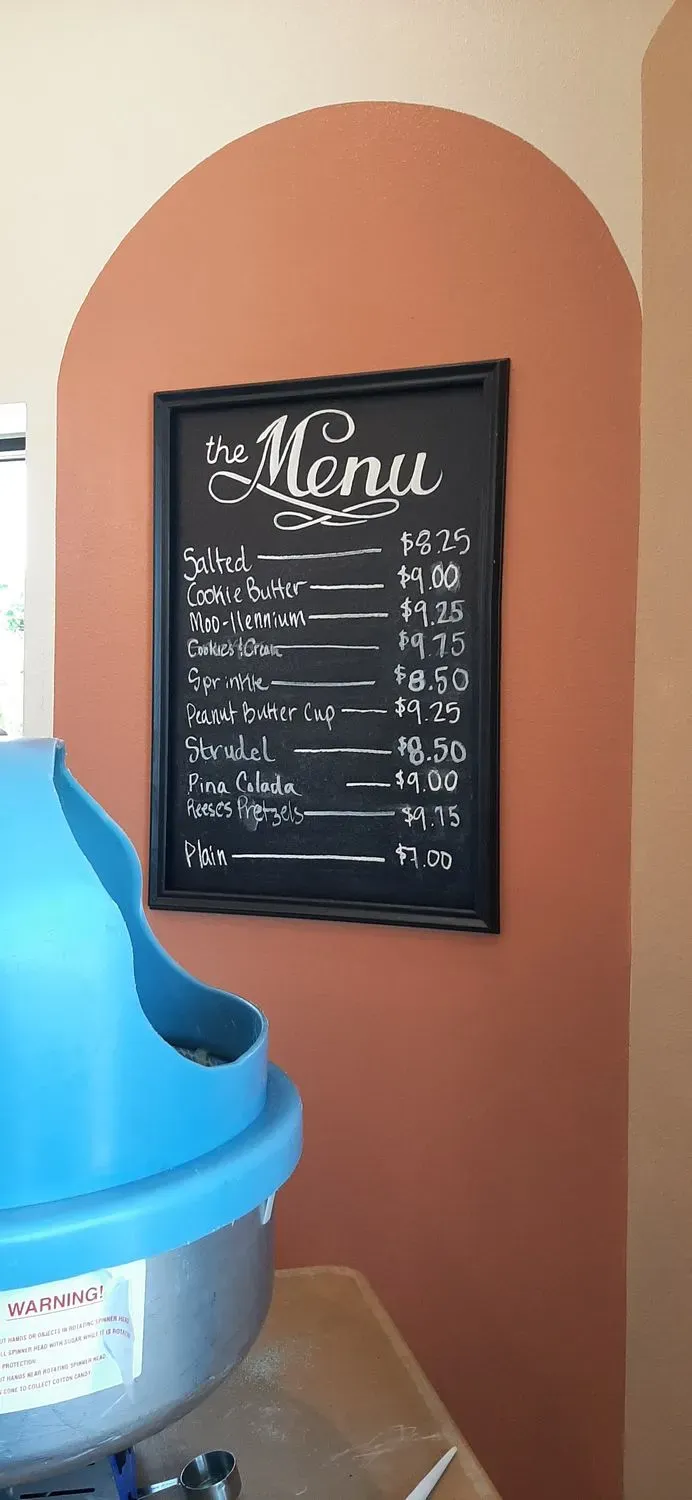 the Menu
Salted $8.25
Cookie Butter $9.00
Moo-llennium $9.25
Cookies & Cream $9.75
Sprinkle $8.50
Peanut Butter Cup $9.25
Strudel $8.50
Pina Colada $9.00
Reese's Pretzels $9.75
Plain $7.00
WARNING!
HANDS OR OBJECTS IN ROTATING SPINNER HEAD
SPINNER HEAD WITH SUGAR WHILE IT IS
PROTECTION
HANDS NEAR ROTATING SPINNER HEAD
CONE TO COLLECT COTTON CANDY